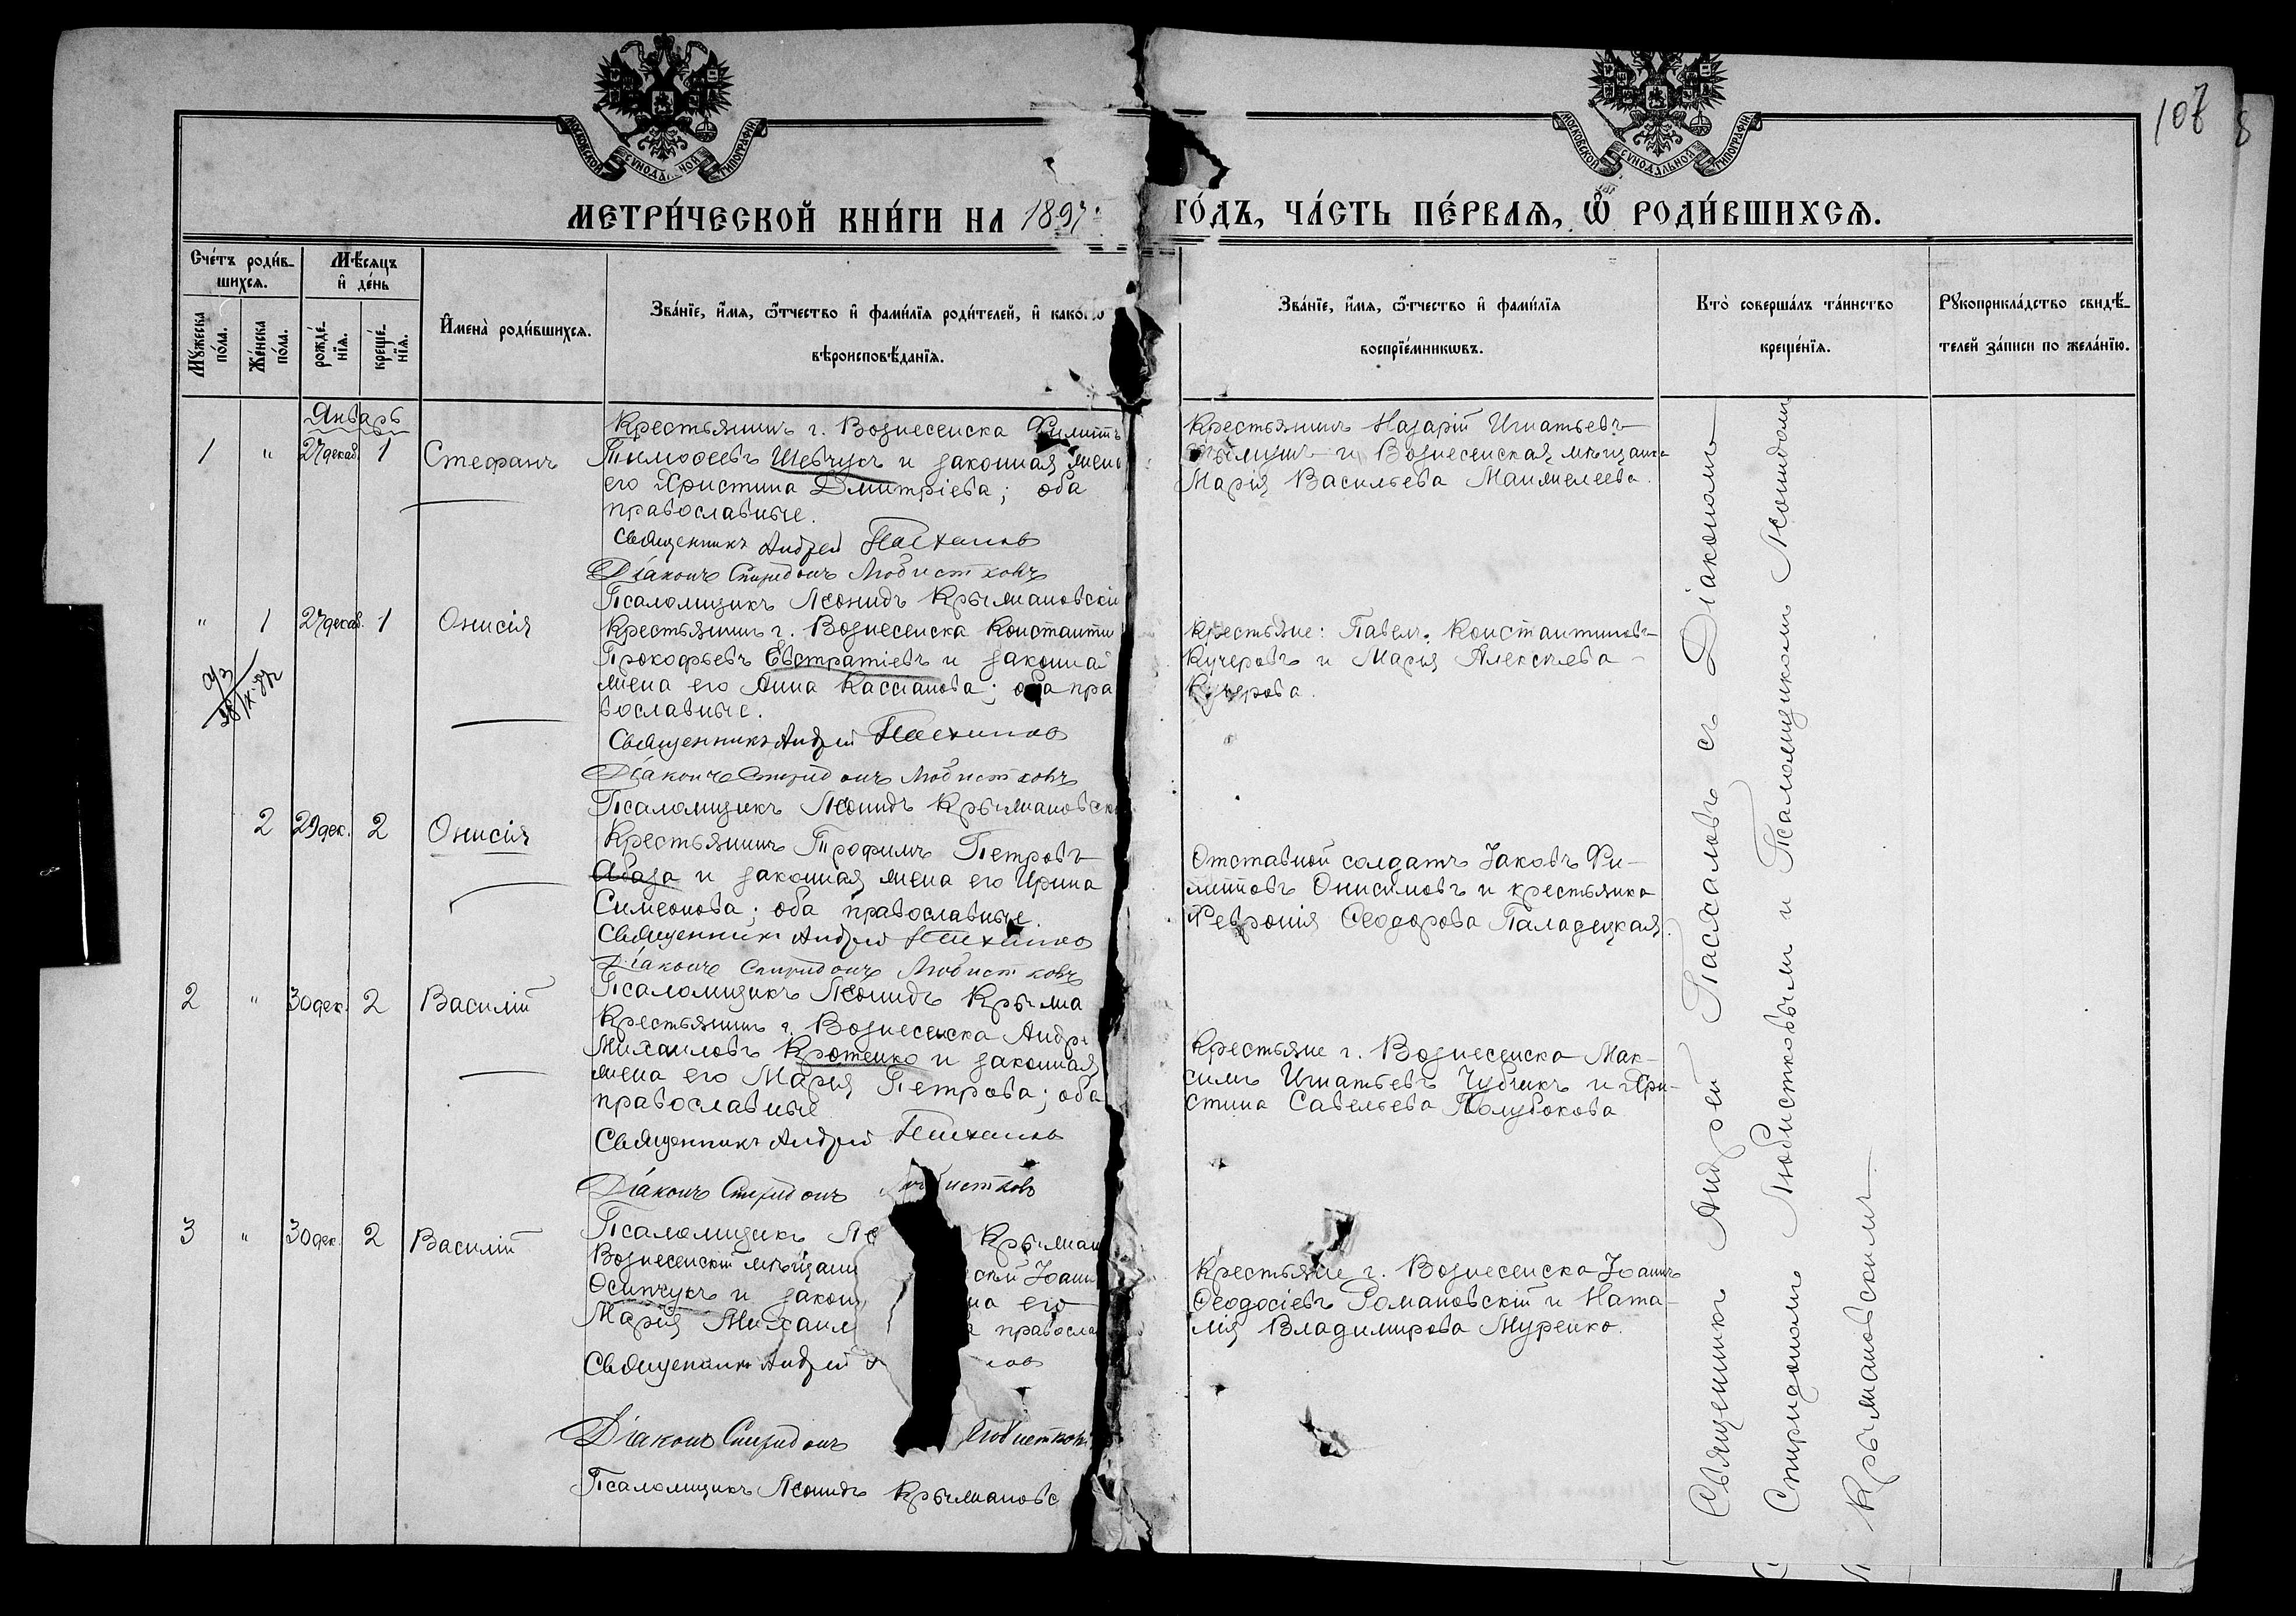 МОСКОВСКОЙ СѴНОДАЛЬНОЙ ТИПОГРАФІИ
МОСКОВСКОЙ СѴНОДАЛЬНОЙ ТИПОГРАФІИ
107
8
МЕТРИ́ЧЕСКОЙ КНИ́ГИ НА 1897 ГО́ДЪ, ЧА́СТЬ ПЕ́РВАѦ, Ѡ҆ РОДИ́ВШИХСѦ.
Сче́тъ роди́в-
шихсѧ.
Мꙋ́жеска
по́ла.
Же́нска
по́ла.
Мѣ́сѧцъ
и҆ де́нь
рожде́-
нїѧ.
креще́-
нїѧ.
И҆мена̀ роди́вшихсѧ.
Зва́нїе, и҆́мѧ, ѻ҆́тчество и҆ фами́лїѧ роди́телей, и҆ како́гѡ
вѣроисповѣ́данїѧ.
Зва́нїе, и҆́мѧ, ѻ҆́тчество и҆ фами́лїѧ
воспрїе́мникѡвъ.
Кто̀ соверша́лъ та́инство
креще́нїѧ.
Рꙋкоприкла́дство свидѣ́-
телей за́писи по жела́нїю.
Январь
1 " 27 декаб. 1 Стефанъ
Крестьянинъ г. Вознесенска Филиппъ
Тимоѳеевъ Шевчукъ и законная жена
его Христина Дмитріева; оба
православные.
Священникъ Андрей Пасхаловъ
Діаконъ Спиридонъ Любистковъ
Псаломщикъ Леонидъ Крыжановскій
Крестьянинъ Назарій Игнатьевъ
и Вознесенская мѣщанка
Марія Васильева
" 1 27 декаб. 1 Онисія
Крестьянинъ г. Вознесенска Константи
Прокофьевъ Евстратіевъ и законна
жена его Анна Кассіанова; оба пра
вославные.
Священникъ Андрей Пасхаловъ
Діаконъ Спиридонъ Любистковъ
Псаломщикъ Леонидъ Крыжановскі
Крестьяне: Павелъ Константиновъ
Кучеровъ и Марія Алексѣева
Кучерова.
2 29 дек. 2 Онисія
Крестьянинъ Трофимъ Петровъ
Абаза и законная жена его Ирина
Симеонова; оба православные.
Священникъ Андрей Пасхаловъ
Діаконъ Спиридонъ Любистковъ
Псаломщикъ Леонидъ Крыжа
Отставной солдатъ Іаковъ Фи-
липповъ Онисимовъ и крестьянка
Февронія Ѳеодорова Паладецкая.
2 " 30 дек. 2 Василій
Крестьянинъ г. Вознесенска Андре
Михаиловъ Кротенко и законная
жена его Марія Петрова; оба
православные
Священникъ Андрей Пасхаловъ
Діаконъ Спиридонъ Любистковъ
Псаломщикъ Ле Крыжан
Крестьяне г. Вознесенска Мак-
симъ Игнатьевъ Чубчикъ и Хри-
стина Савельева Голубокова
3 " 30 дек. 2 Василій
Вознесенскій мѣщани скій Іоанн
Осипчукъ и закон на его
Марія Михаил а правосла
Священникъ Андрей ловъ
Діаконъ Спиридонъ Любистковъ
Псаломщикъ Леонидъ Крыжановс
Крестьяне г. Вознесенска Іоаннъ
Ѳеодосіевъ Романовскій и Ната-
лія Владимирова Муренко.
Священникъ Андрей Пасхаловъ съ Діакономъ
Спиридономъ Любистковымъ и Псаломщикомъ Леонидомъ
Крыжановскимъ